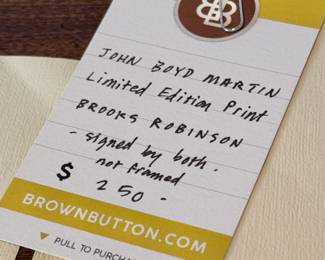 JOHN BOYD MARTIN
Limited Edition Print
BROOKS ROBINSON
- signed by both -
not framed
$ 250-
BROWNBUTTON.COM
▼ PULL TO PURCHA